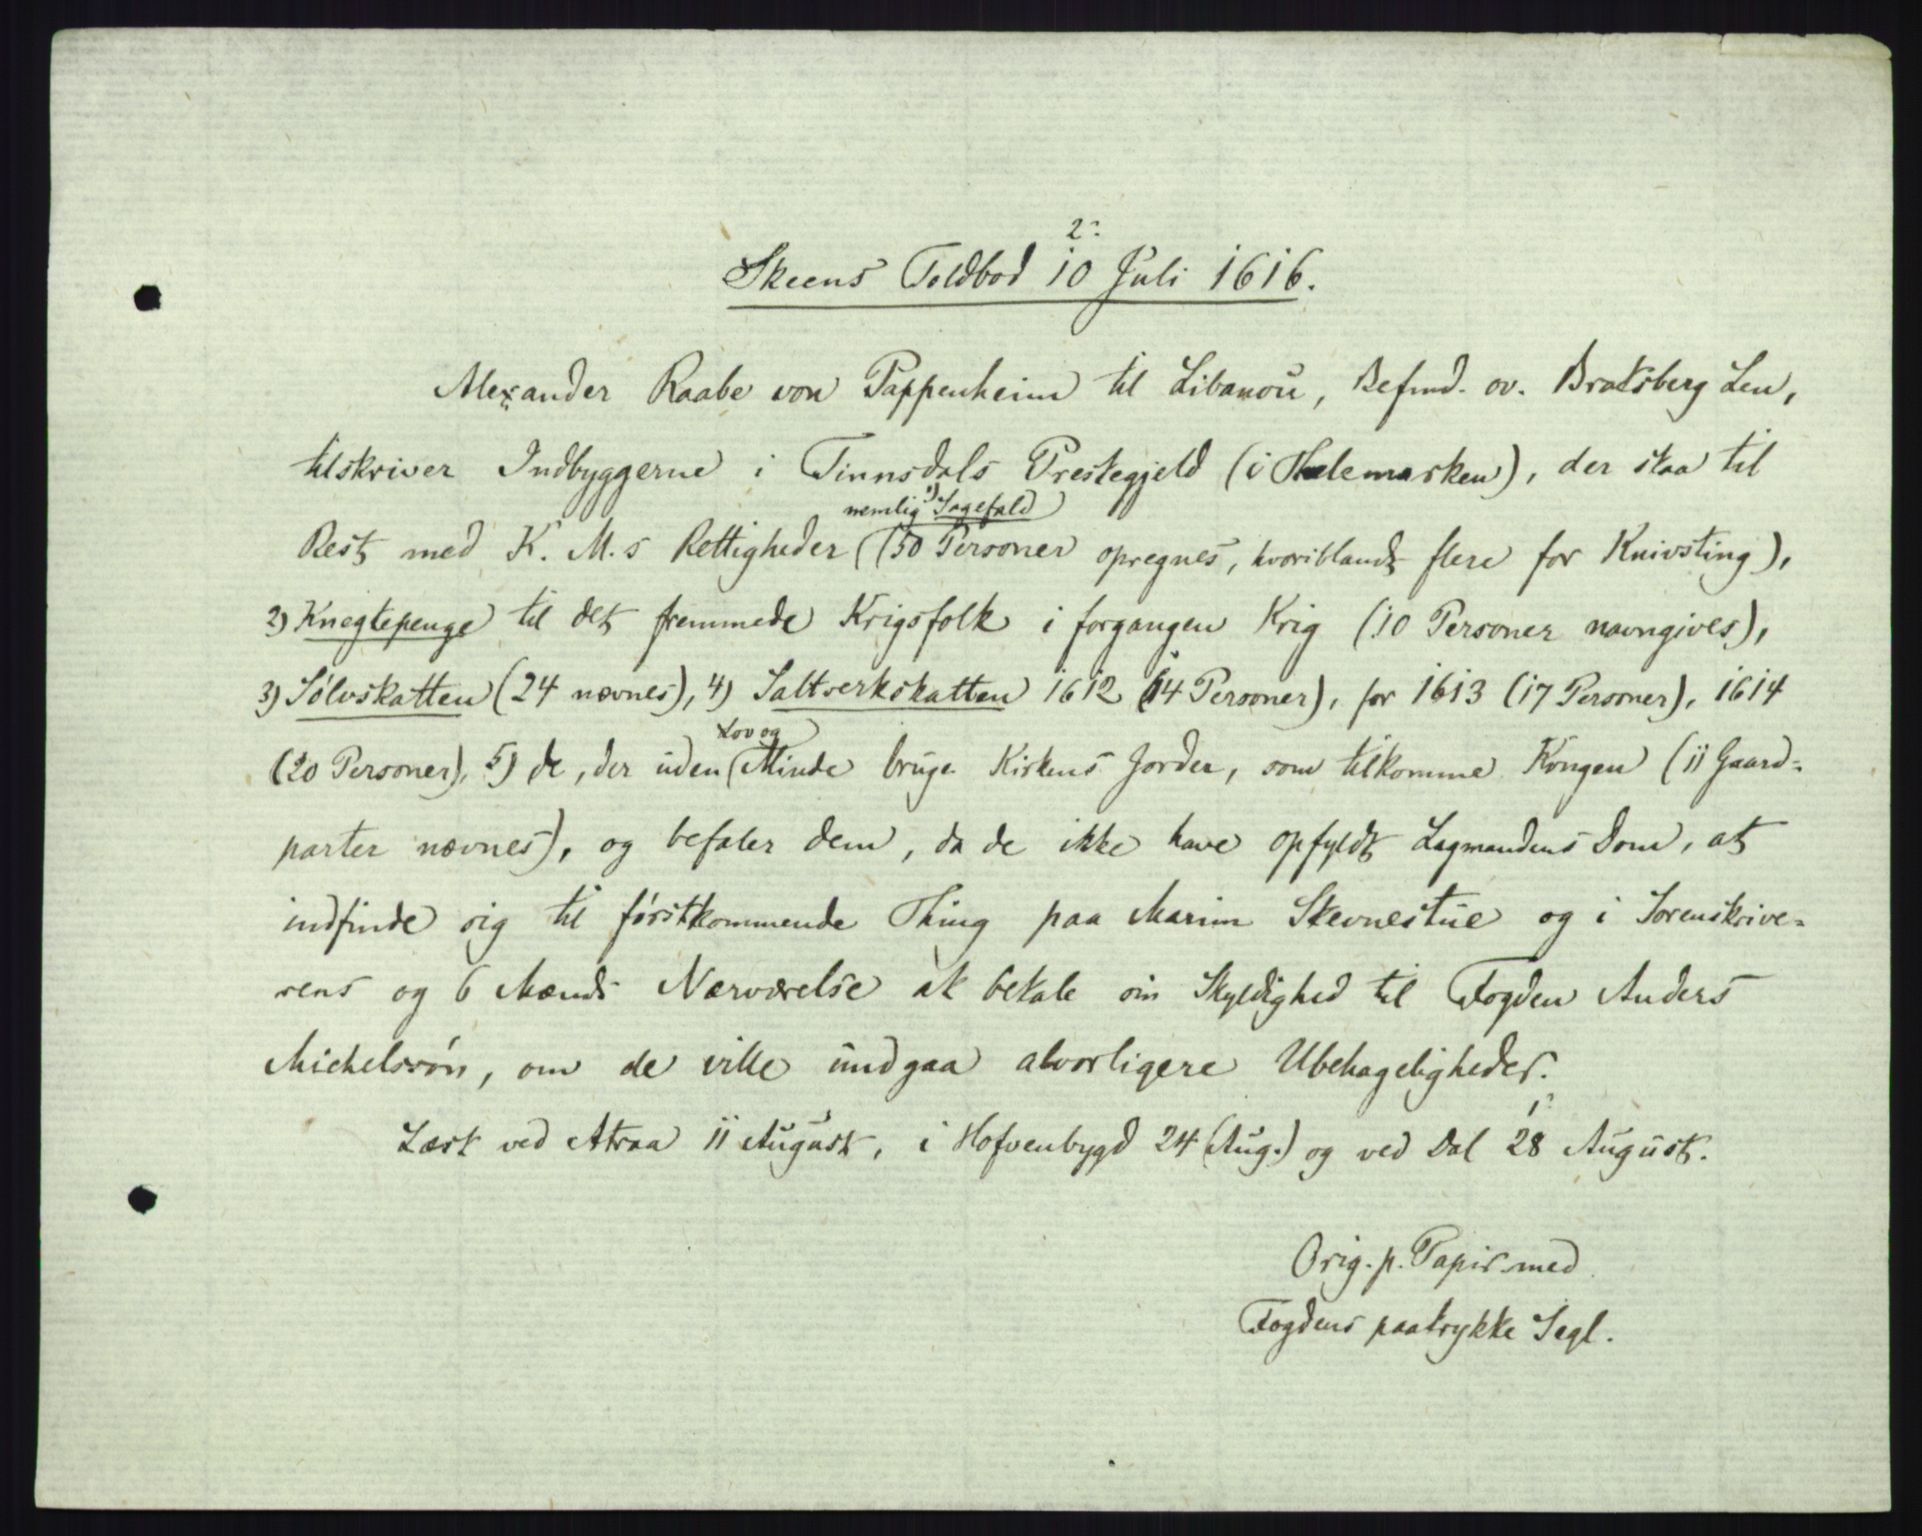 2:
Skeens Toldbod 10 Juli 1616.
Alexander Raabe von Pappenheim til Libanou, Befmd. ov. Bratsberg Len,
tilskriver Indbyggerne i Tinnsdals Prestegjeld (i Thelemarken), der staa til
nemlig 1) Sagefald
Rest med K. M.s Rettigheder (50 Personer opregnes, hvoriblandt flere for Knivsting),
2) Knegtepenge til det fremmede Krigsfolk i forgangen Krig (10 Personer navngives),
3) Sølvskatten (24 nævnes), 4) Saltverkskatten 1612 (14 Personer), for 1613 (17 Personer), 1614
Lov og
(20 Personer), 5) de, der uden Minde bruge Kirkens Jorder, som tilkomme Kongen (11 Gaard-
parter nævnes), og befaler dem, da de ikke have opfyldt Lagmandens Dom, at
indfinde sig til førstkommende Thing paa Marim Stevnestue og i Sorenskrive-
rens og 6 Mænds Nærværelse at betale sin Skyldighed til Fogden Anders
Michelssøn, om de ville undgaa alvorligere Ubehageligheder.
Læst ved Atraa 11 August, i Hofvenbygd 24 (Aug.) og ved Dal 28 August.
Orig. p. Papir med
Fogdens paatrykke Segl.